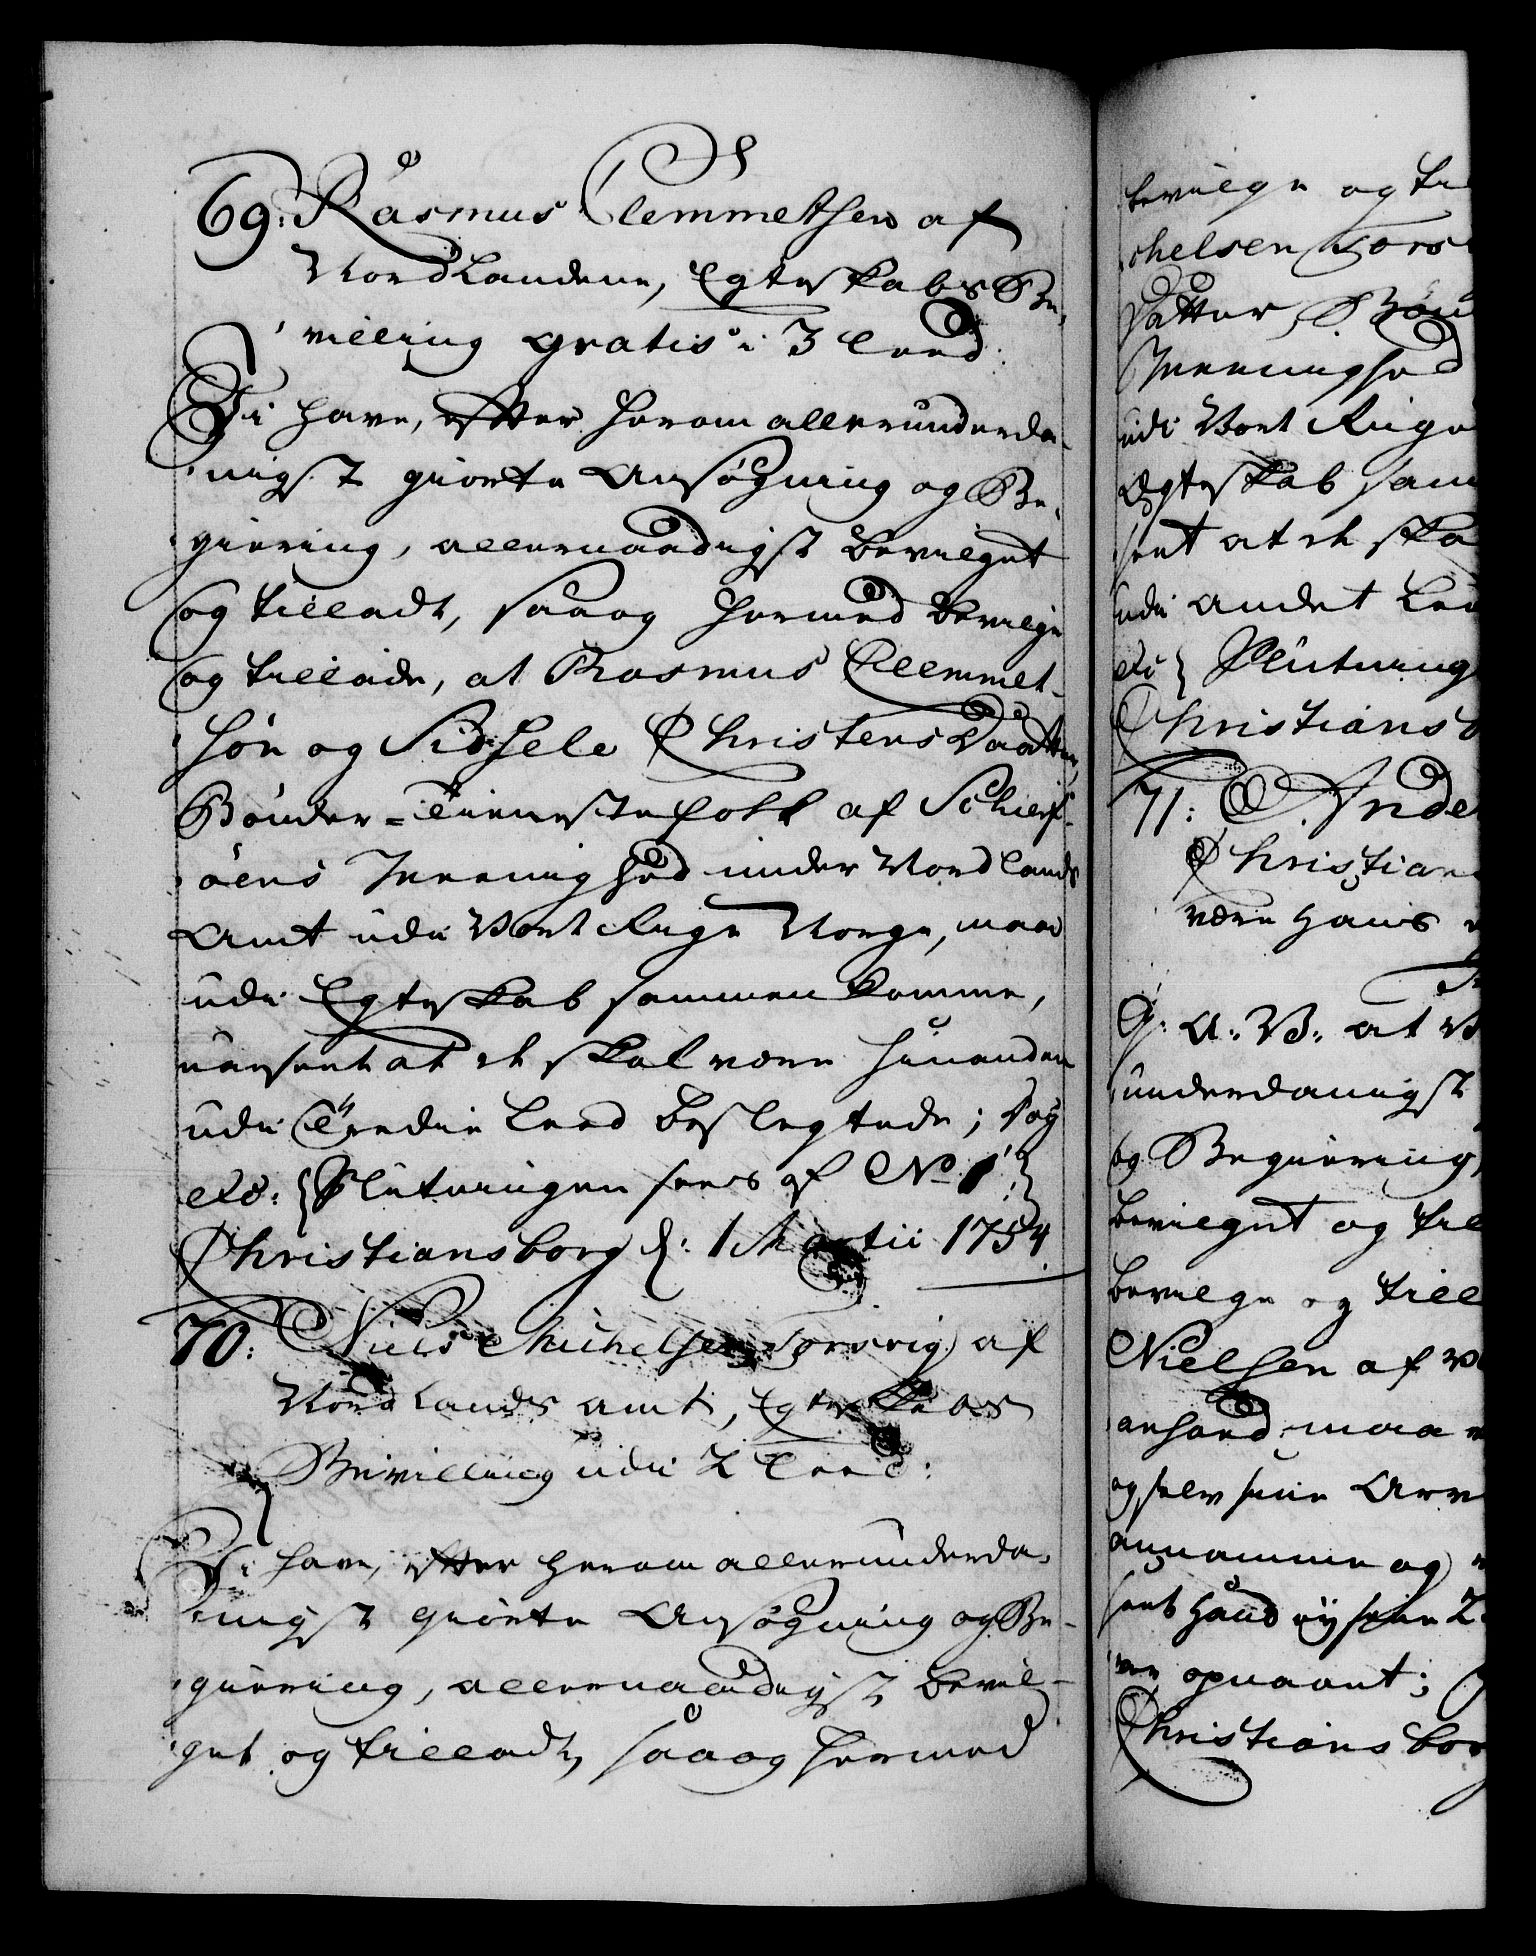 69: Rasmus Clemmethsen af
Nordlandene, Egteskabs Be-
villing gratis i 3 Leed:
Vi have, efter herom allerunderda-
nigst giorte Ansøgning og Be-
giering, allernaadigst bevilget
og tilladt, saa og hermed bevilge
og tillade, at Rasmus Clemmet-
søn og Sidsele Christensdaatter,
Bønder-Tienestefolk af
øens Menighed under Nordlands
Amt udi Vort Rige Norge, maae
udi Egteskab sammenkomme,
uanseet at de skal være hinanden
udi Tredie Leed beslegtede; Dog
etc: {Slutningen sees af No 1.}
Christiansborg d: 1 Martii 1754.
70: Niels Michelsen Torsvig af
Nordlands Amt, Egteskabs
Bevilling udi 2 Leed:
Vi have, efter herom allerunderda-
nigst giorte Ansøgning og Be-
giering, allernaadigst bevil-
get og tilladt, saa og hermed
bevilge og til
chelsen Tors
Datter, Bøn
Menighed
udi Vort Rige
Egteskab sam
seet at de ska
udi andet Lee
etc { Slutning
Christiansb
71: Ande
Christian
være Hans
G: A: V: at V
underdanigst
og Begiering,
bevilget og till
bevilge og till
Nielsen af
enhand maa
og selv sine Arv
annamme og
seet Hand ey sine 2
opnaaet;
Christiansbor